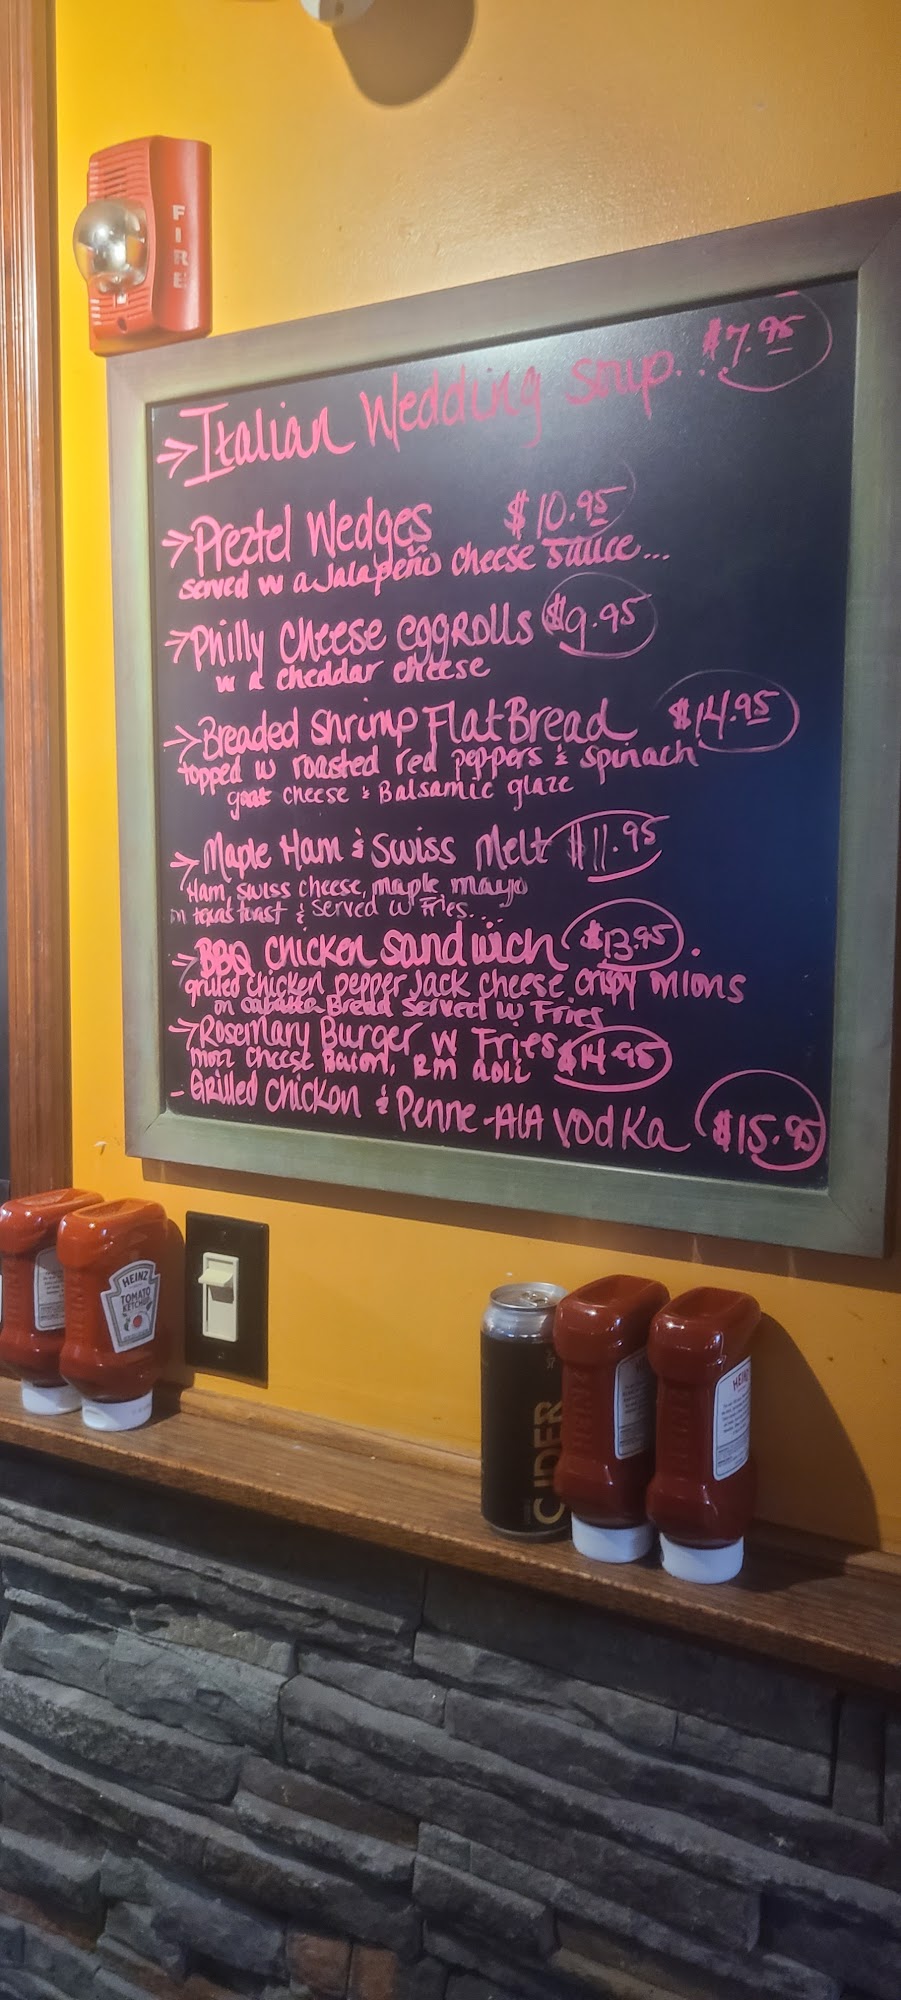 FIRE
Italian Wedding Soup... $7.95
Preztel Wedges $10.95
served w a Jalapeño cheese sauce...
Philly cheese eggrolls $9.95
w a cheddar cheese
Breaded Shrimp FlatBread $14.95
topped w roasted red peppers & spinach
goat cheese & Balsamic glaze
Maple Ham & Swiss Melt $11.95
Ham, swiss cheese, maple mayo
on texas toast & served w Fries...
BBQ chicken sandwich $13.95.
grilled chicken pepper Jack cheese crispy onions
on Bread served w Fries
Rosemary Burger w Fries $14.95
mozz cheese Bacon, RM aoli
- Grilled chicken & Penne-AlA vodka $15.95
HEINZ
TOMATO
KETCHUP
CIDER
HEINZ